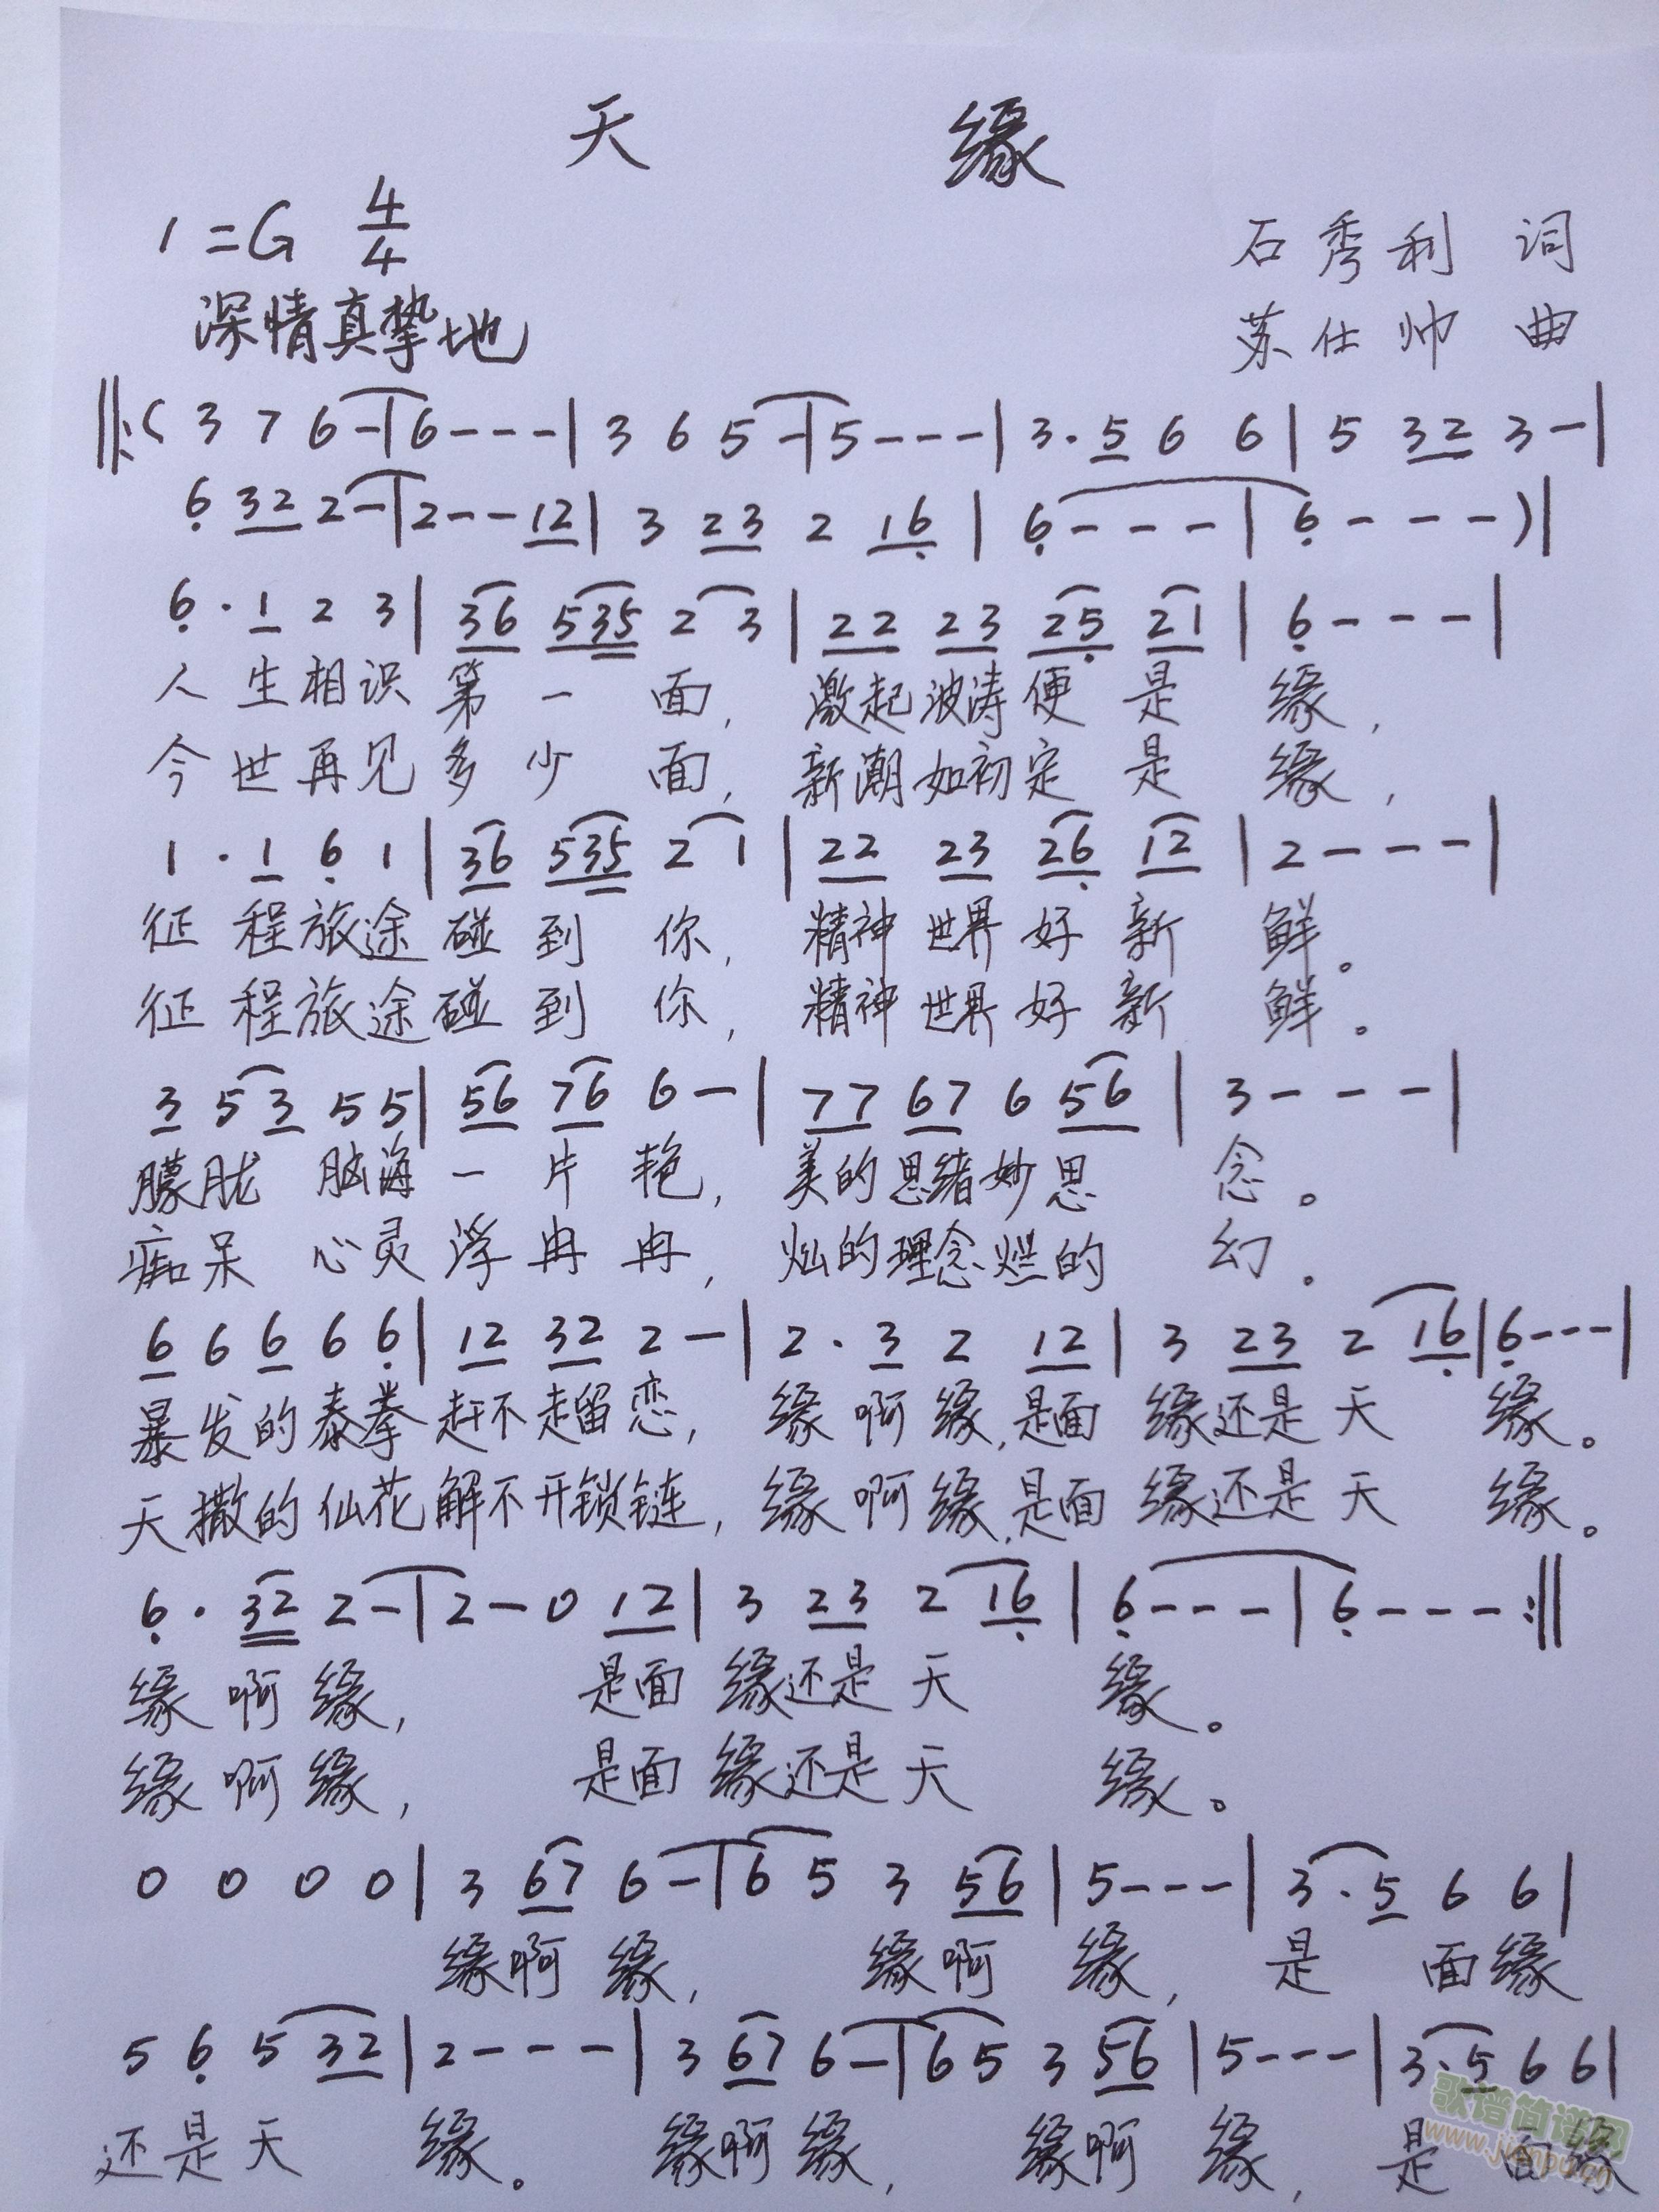 天 缘
1=G 4/4
石秀利 词
深情真挚地
苏仕帅 曲
‖:( 3 7 6 - | 6 - - - | 3 6 5 - | 5 - - - | 3 · 5 6 6 | 5 32 3 - |
6 32 2 - | 2 - - 12 | 3 23 2 16 | 6 - - - | 6 - - - )|
6 · 1 2 3 | 36 535 2 3 | 22 23 25 21 | 6 - - - |
人生相识第一面, 激起波涛便是缘,
今世再见多少面, 新潮如初定是缘,
1 · 1 6 1 | 36 535 2 1 | 22 23 26 12 | 2 - - - |
征程旅途碰到你, 精神世界好新鲜。
征程旅途碰到你, 精神世界好新鲜。
3 5 3 5 5 | 56 76 6 - | 77 67 6 56 | 3 - - - |
朦胧 脑海一片艳, 美的思绪妙思念。
痴呆 心灵浮冉冉, 灿的理念烂的幻。
6 6 6 6 6 | 12 32 2 - | 2 · 3 2 12 | 3 23 2 16 | 6 - - - |
暴发的泰拳赶不走留恋, 缘啊缘,是面缘还是天缘。
天撒的仙花解不开锁链, 缘啊缘,是面缘还是天缘。
6 · 32 2 - | 2 - 0 12 | 3 23 2 16 | 6 - - - | 6 - - - :‖
缘啊缘, 是面缘还是天缘。
缘啊缘, 是面缘还是天缘。
0 0 0 0 | 3 67 6 - | 6 5 3 56 | 5 - - - | 3 · 5 6 6 |
缘啊缘, 缘啊缘, 是面缘
5 6 5 32 | 2 - - - | 3 67 6 - | 6 5 3 56 | 5 - - - | 3 · 5 6 6 |
还是天缘。 缘啊缘, 缘啊缘, 是面缘
歌谱简谱网
www.jianpu.cn